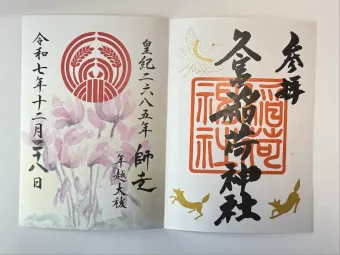 参拝
久富稲荷神社
稲荷
神社
皇紀二六八五年 師走
年越大祓
令和七年十二月二十八日